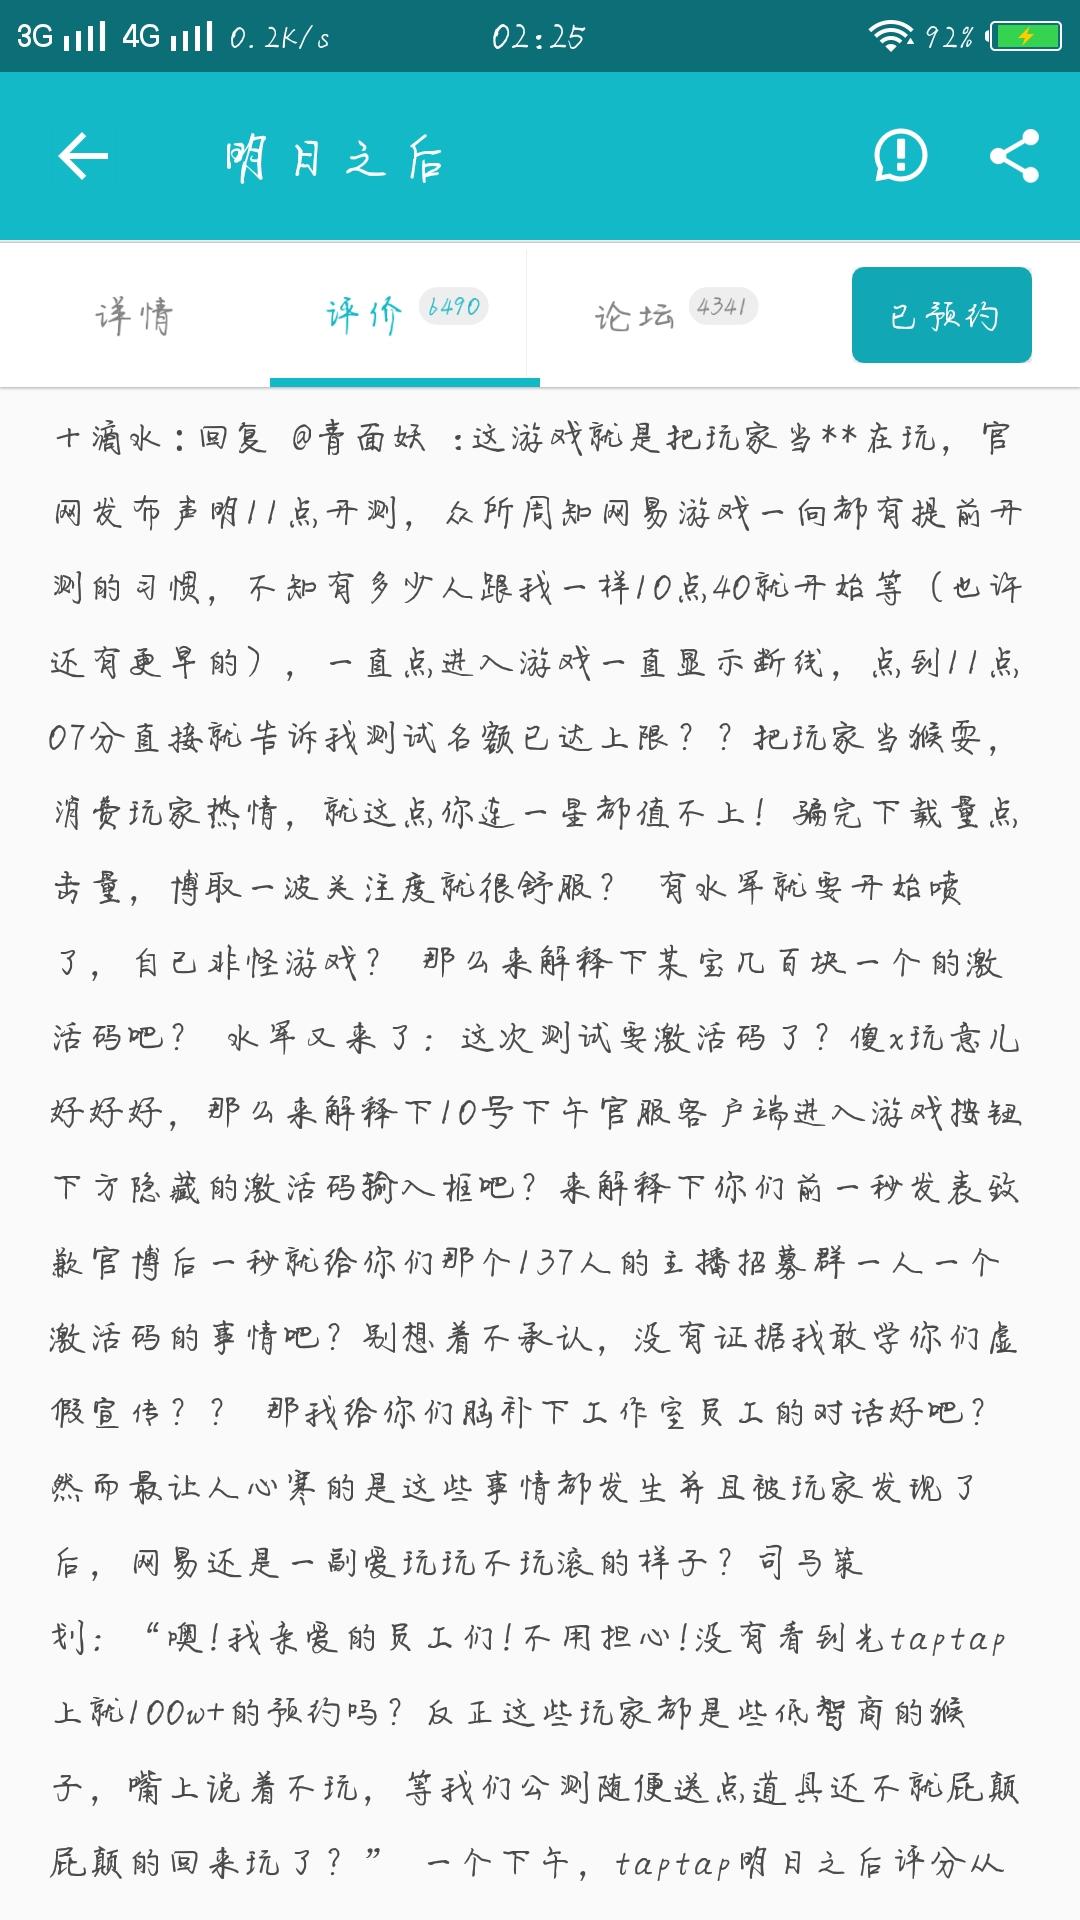 3G 4G 0.2K/s 02:25 92%
明日之后
详情 评价 6490 论坛 4341 已预约
十滴水:回复 @青面妖 :这游戏就是把玩家当**在玩，官
网发布声明11点开测，众所周知网易游戏一向都有提前开
测的习惯，不知有多少人跟我一样10点40就开始等（也许
还有更早的），一直点进入游戏一直显示断线，点到11点
07分直接就告诉我测试名额已达上限？？把玩家当猴耍，
消费玩家热情，就这点你连一星都值不上！骗完下载量点
击量，博取一波关注度就很舒服？ 有水军就要开始喷
了，自己非怪游戏？ 那么来解释下某宝几百块一个的激
活码吧？ 水军又来了：这次测试要激活码了？傻x玩意儿
好好好，那么来解释下10号下午官服客户端进入游戏按钮
下方隐藏的激活码输入框吧？来解释下你们前一秒发表致
歉官博后一秒就给你们那个137人的主播招募群一人一个
激活码的事情吧？别想着不承认，没有证据我敢学你们虚
假宣传？？ 那我给你们脑补下工作室员工的对话好吧？
然而最让人心寒的是这些事情都发生并且被玩家发现了
后，网易还是一副爱玩玩不玩滚的样子？司马策
划：“噢!我亲爱的员工们!不用担心!没有看到光taptap
上就100w+的预约吗？反正这些玩家都是些低智商的猴
子，嘴上说着不玩，等我们公测随便送点道具还不就屁颠
屁颠的回来玩了？” 一个下午，taptap明日之后评分从